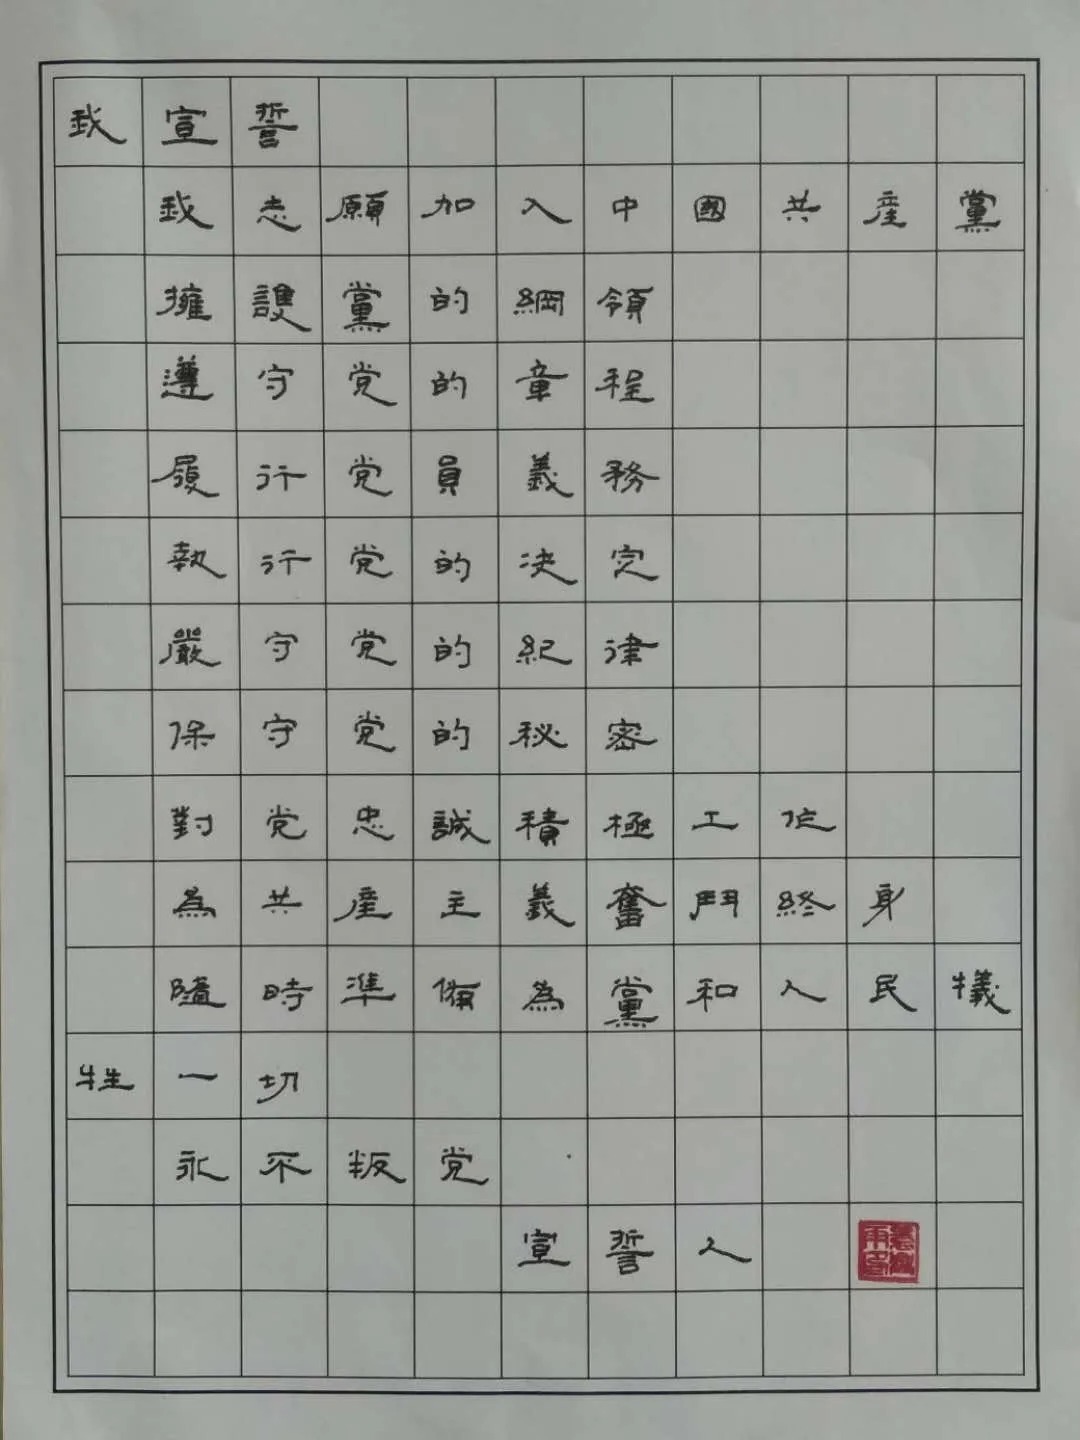 我宣誓
我志願加入中國共產黨
擁護黨的綱領
遵守党的章程
履行党員義務
執行党的决定
嚴守党的紀律
保守党的秘密
對党忠誠積極工作
為共產主義奮鬥終身
隨時準備為黨和人民犧
牲一切
永不叛党
宣誓人